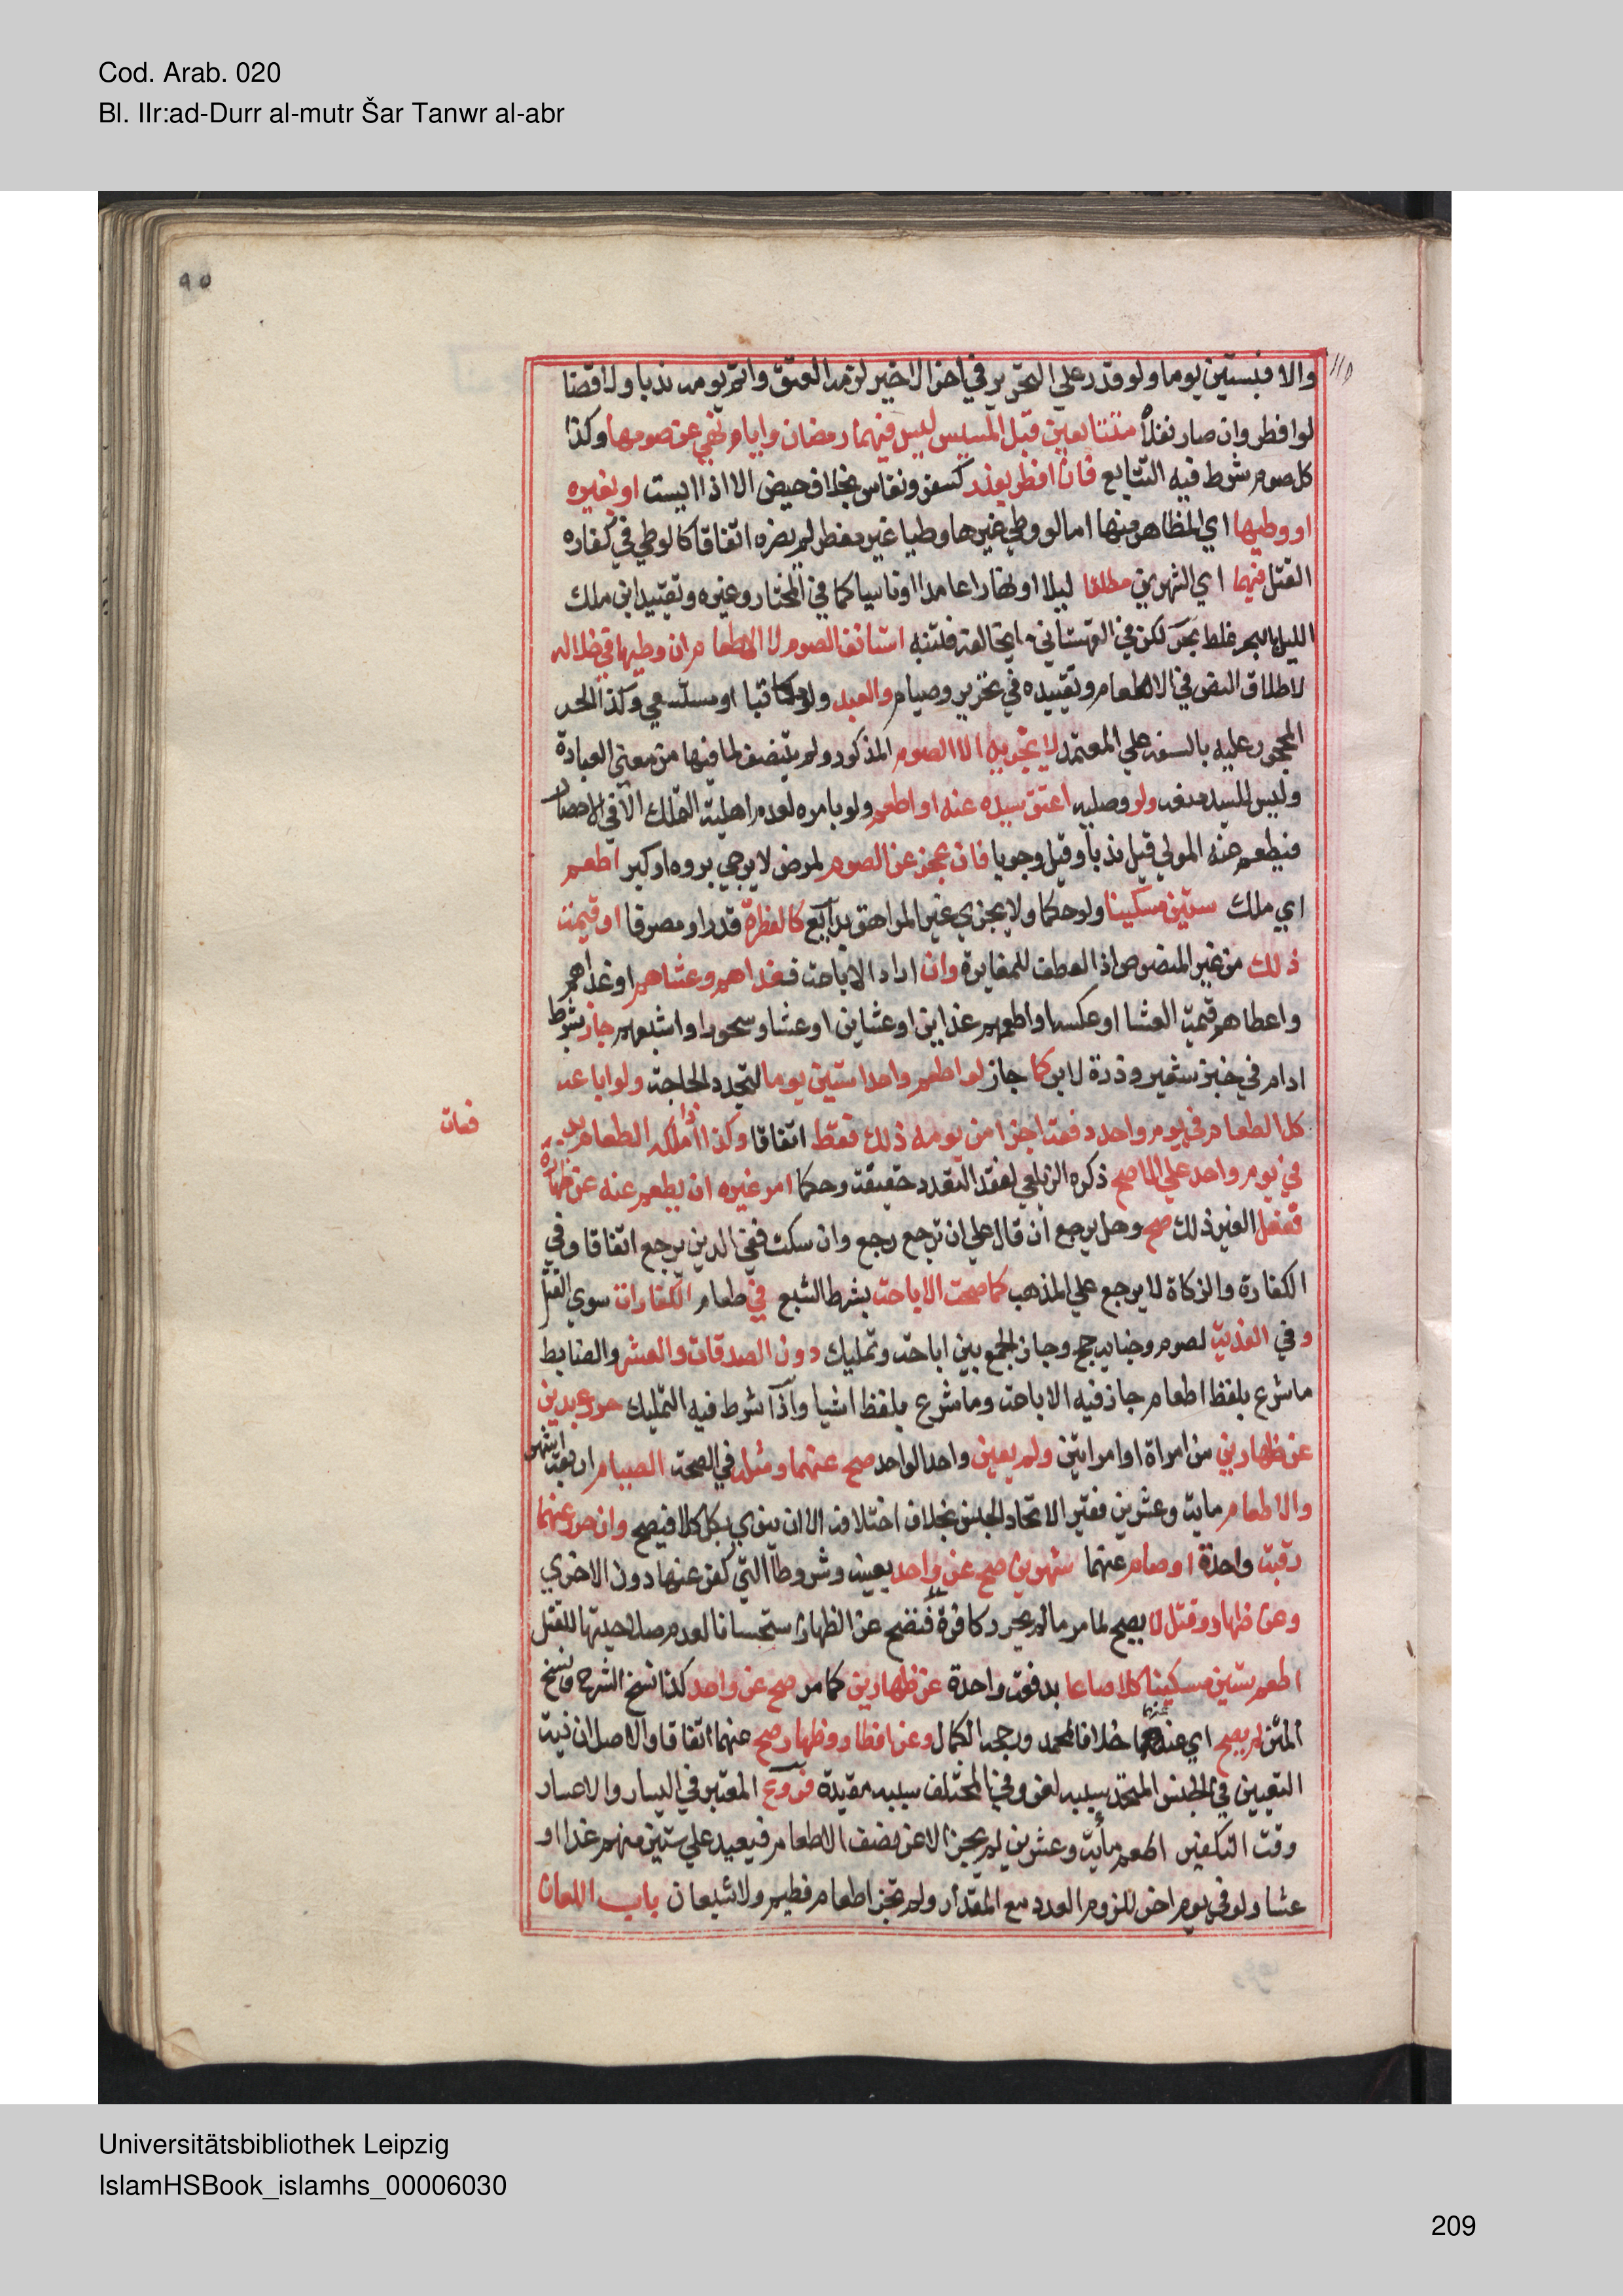 Cod. Arab. 020
Bl. IIr:ad-Durr al-mutr Šar Tanwr al-abr
٩٥
والا فبستين يوما ولو قدر علي التحرير في اخر الاخير لزمه العتق واتم يومه ندبا ولا قضا
لو افطر وان صار نفلا متتابعين قبل المسيس ليس فيهما رمضان وايام نهي عن صومها وكذا
كل صوم شرط فيه التتابع فان افطر بعذر كسفر ونفاس بخلاف حيض الا اذا ايست او بغيره
او وطيها اي المظاهر منها اما لو وطي غيرها وطيا غير مفطر لم يضره اتفاقا كالوطي في كفاره
القتل فيهما اي الشهرين مطلقا ليلا او نهارا عامدا او ناسيا كما في المختار وغيره وتقييد ابن ملك
الليل بالبحر غلط بحر لكن في القهستاني ما يخالفه فلتنبه استانف الصوم لا الاطعام ان وطيها في خلاله
لاطلاق النص في الاطعام وتقييده في تحرير وصيام والعبد ولو مكاتبا او مستسعي وكذا الحر
المحجور عليه بالسفه علي المعتمد لا يجزيه الا الصوم المذكور ولم يتنصف لما فيها من معني العبادة
وليس للسيد منعه ولو وصليه اعتق سيده عنه او اطعم ولو بامره لعدم اهلية التملك الا في الاحصار
فيطعم عنه المولي قيل ندبا وقيل وجوبا فان عجز عن الصوم لمرض لا يرجي بروه او كبر اطعم
اي ملك ستين مسكينا ولو حكما ولا يجزي غير المراهق بدايع كالفطرة قدرا ومصرفا او قيمة
ذلك من غير المنصوص اذ العطف للمغايرة وان اراد الاباحة فغداهم وعشاهم او غداهم
واعطاهم قيمة العشا او عكسه او اطعمهم غداين او عشاين او عشا وسحورا واشبعهم جاز بشرط
ادام في خبز شعير وذرة لا بر كما جاز لو اطعم واحدا ستين يوما لتجدد الحاجة ولو اباحه
كل الطعام في يوم واحد دفعة اجزا من يومه ذلك فقط اتفاقا وكذا اذا ملكه الطعام بدفعات
في يوم واحد علي الاصح ذكره الزيلعي لفقد التعدد حقيقة وحكما امر غيره ان يطعم عنه عن ظهاره
ففعل الغير ذلك صح وهل يرجع ان قال علي ان ترجع رجع وان سكت ففي الدين يرجع اتفاقا وفي
الكفارة والزكاة لا يرجع علي المذهب كما صحت الاباحة بشرط الشبع في طعام الكفارات سوي القتل
وفي الفدية لصوم وجناية حج وجاز الجمع بين اباحة وتمليك دون الصدقات والعشر والضابط
ما شرع بلفظ اطعام جاز فيه الاباحة وما شرع بلفظ ايتا واداا شرط فيه التمليك حرر عبدين
عن ظهارين من امراة او امراتين ولم يعين واحدا لواحد صح عنهما ومثله في الصحة الصيام اربعة اشهر
والاطعام ماية وعشرين فقير الاتحاد الجنس بخلاف اختلافه الا ان ينوي بكل كلا فيصح وان حرر عنهما
رقبة واحدة او صام عنهما شهرين صح عن واحد بعينه وشروطا التي كفر عنها دون الاخري
وعن ظهار وقتل لا يصح لما مر ما لم يحرر كافرة فتصح عن الظهار استحسانا لعدم صلاحيتها للقتل
اطعم ستين مسكينا كلا صاعا بدفعة واحدة عن ظهارين كما مر صح عن واحد كذا نسخ الشرح ونسخ
المتن لم يصح اي عنهما خلافا لمحمد ورجحه الكمال وعن افطار وظهار صح عنهما اتفاقا والاصل ان نية
التعيين في الجنس المتحد سببه لغو وفي المختلف سببه مقيدة فروع المعتبر في اليسار والاعسار
وقت التكفير اطعم ماية وعشرين لم يجز الا عن نصف الاطعام فيعيد علي ستين منهم غدا او
عشا ولو في يوم اخر للزوم العدد مع المقدار ولم تجز اطعام فطيم ولا شبعان باب اللعان
فعات
Universitätsbibliothek Leipzig
IslamHSBook_islamhs_00006030
209